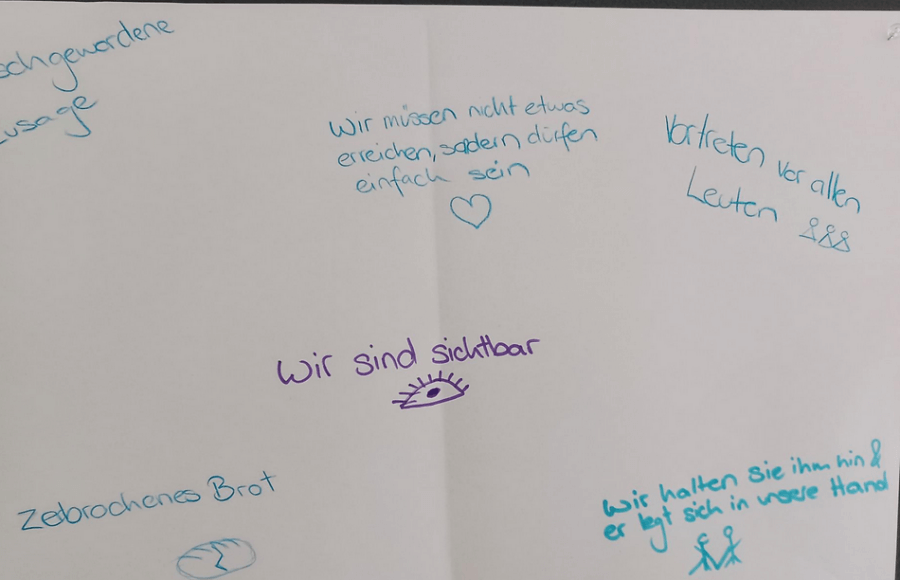 schgewordene
usage
Wir müssen nicht etwas
erreichen, sodern dürfen
einfach sein
Vortreten vor allen
Leuten
Wir sind sichtbar
zebrochenes Brot
Wir halten Sie ihm hin &
er legt sich in unsere Hand